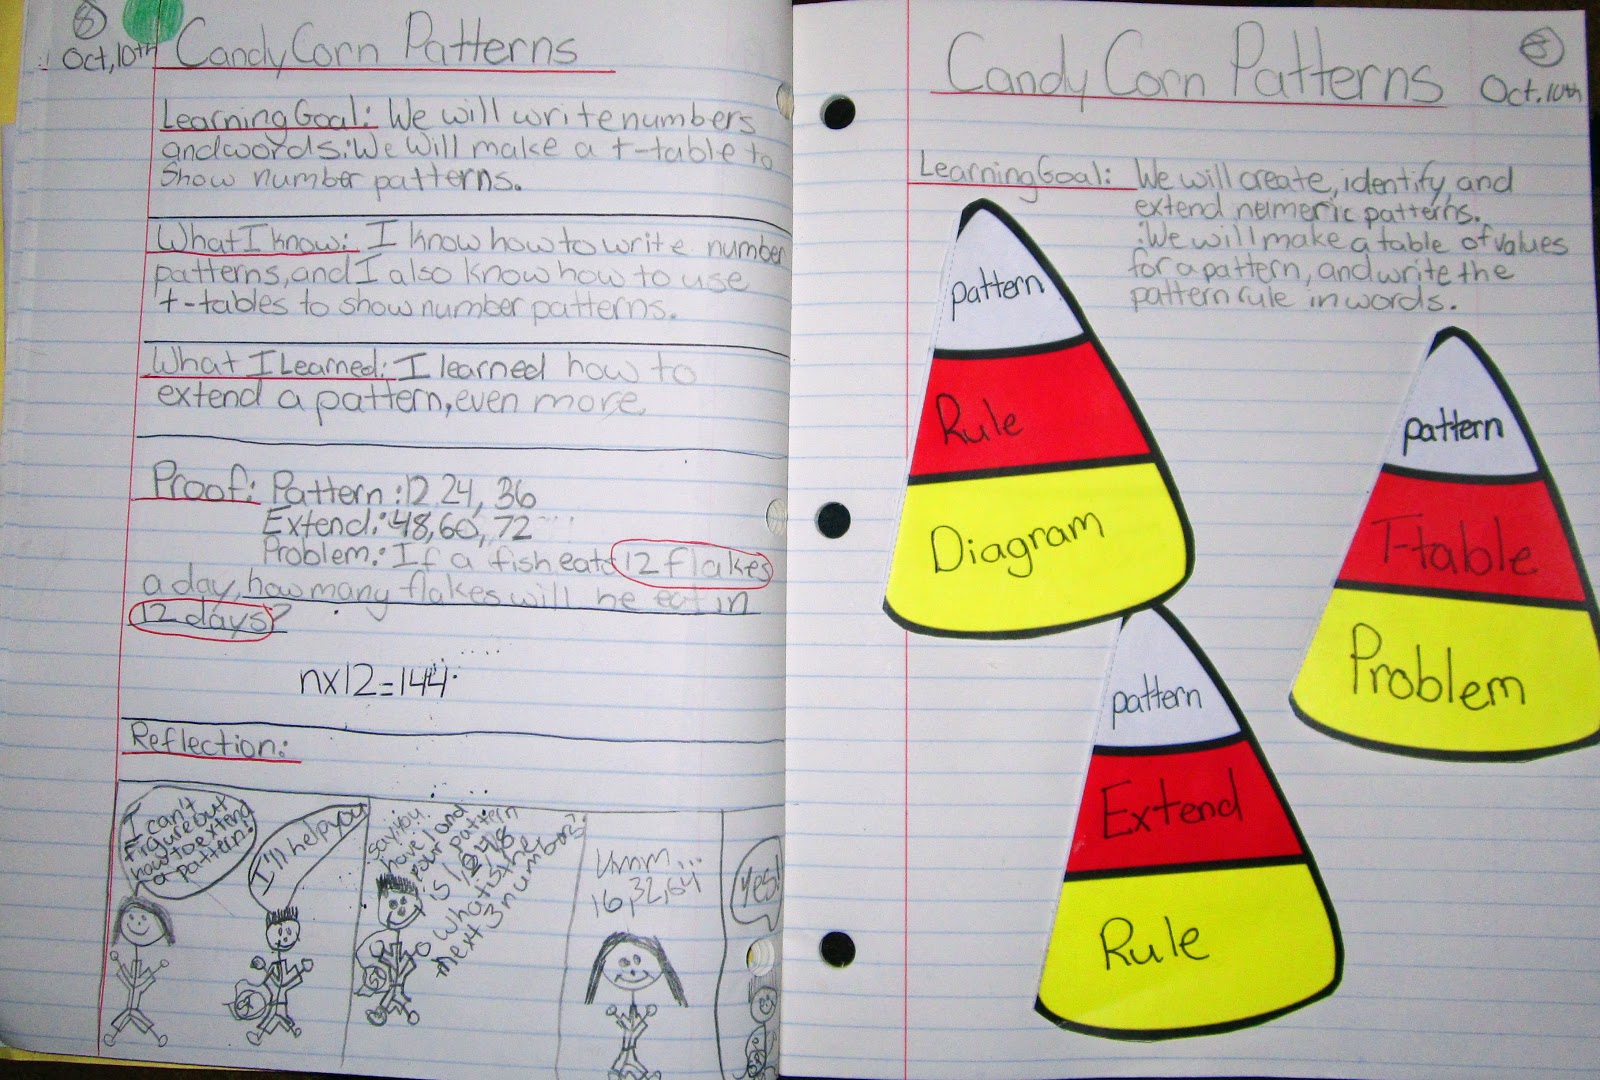 8
Oct, 10th Candy Corn Patterns
Learning Goal: We will write numbers
and words. : We will make a t-table to
show number patterns.
What I know: I know how to write number
patterns, and I also know how to use
t-tables to show number patterns.
What I Learned: I learned how to
extend a pattern, even more.
Proof: Pattern: 12 24, 36
Extend: 48, 60, 72
Problem: If a fish eats 12 flakes
a day, how many flakes will he eat in
12 days?
n x 12 = 144
Reflection:
I can't
figure out
how to extend
a pattern!
I'll help you
say you
have 1 and
your pattern
is 1, 2 4, 8
what is the
next 3 numbers?
Umm...
16, 32, 64
Yes!
8
Candy Corn Patterns Oct. 10th
Learning Goal: We will create, identify, and
extend numeric patterns.
: We will make a table of values
for a pattern, and write the
pattern rule in words.
pattern
Rule
Diagram
pattern
T-table
Problem
pattern
Extend
Rule